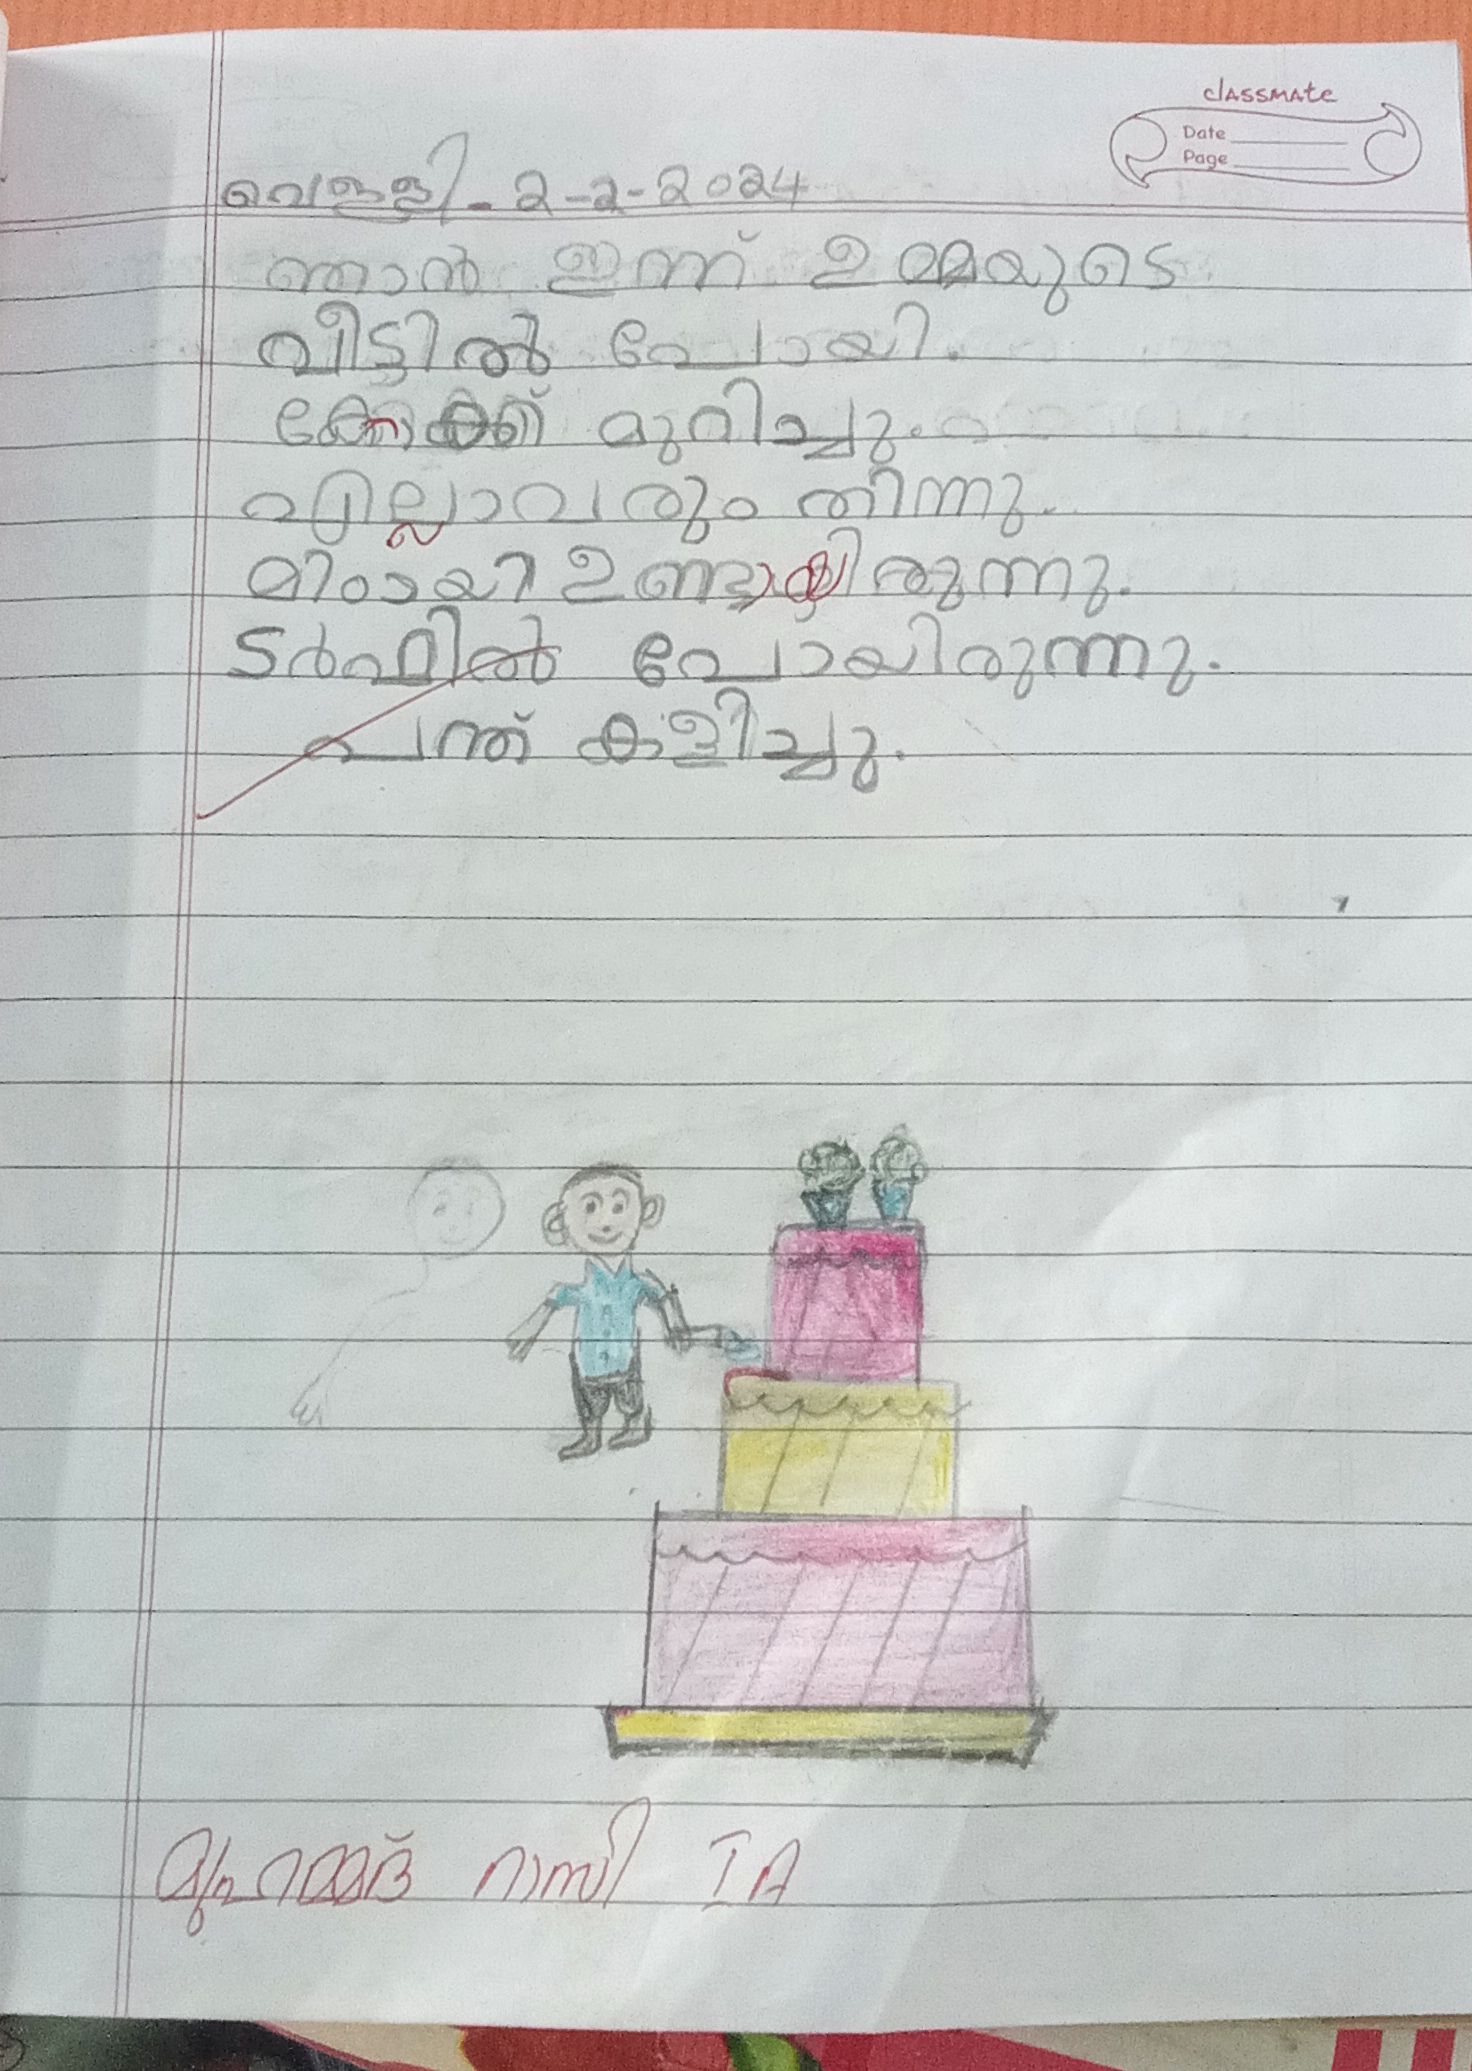 classmate
Date
Page
വെള്ളി - 2-2-2024
ഞാൻ ഇന്ന് ഉമ്മയുടെ
വീട്ടിൽ പോയി.
കേക്ക് മുറിച്ചു.
എല്ലാവരും തിന്നു.
മിഠായി ഉണ്ടായിരുന്നു.
ടർഫിൽ പോയിരുന്നു.
പന്ത് കളിച്ചു.
മുഹമ്മദ് റാസി I A